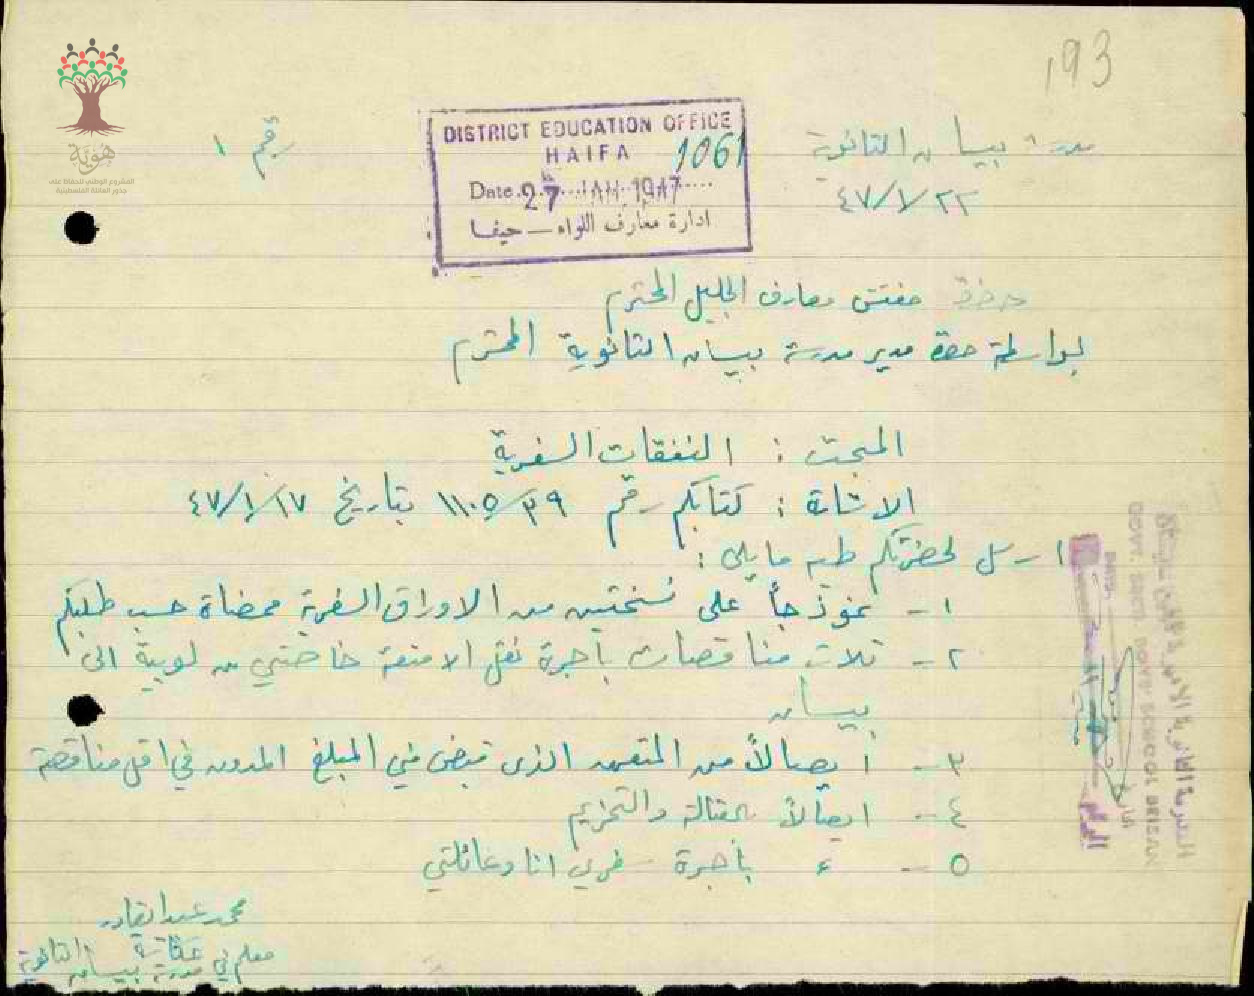 193
هوية
المشروع الوطني للحفاظ على
جذور العائلة الفلسطينية
رقم ١
DISTRICT EDUCATION OFFICE
HAIFA 1061
Date 27 JAN 1947
ادارة معارف اللواء – حيفا
مدرسة بيسان الثانوية
٤٧/١/٢٢
حضرة مفتش معارف الجليل المحترم
بواسطة حضرة مدير مدرسة بيسان الثانوية المحترم
المبحث : النفقات السفرية
الاشارة : كتابكم رقم ١١٠٥/٣٩ بتاريخ ٤٧/١/١٧
ارسل لحضرتكم طيه ما يلي :
١ - نموذجاً على نسختين من الاوراق السفرية ممضاة حسب طلبكم
٢ - ثلاث مناقصات بأجرة نقل الامتعة خاصتي من لوبية الى
بيسان
٣ - ايصالاً من المتعهد الذي قبض مني المبلغ المدون في اقل مناقصة
٤ - ايصالاً بالعتالة والتحزيم
٥ - ء بأجرة سفري انا وعائلتي
محمد عبد القادر
معلم في مدرسة بيسان الثانوية